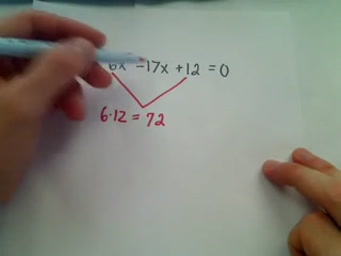 6x -17x +12 = 0
6·12 = 72